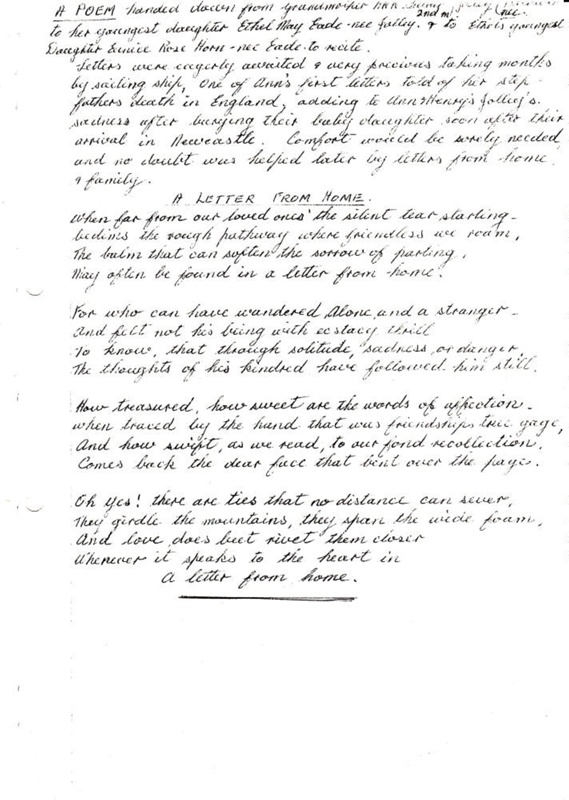 A POEM handed down from grandmother Ann
2nd m. nee.
to her youngest daughter Ethel May Eade - nee Jolley. & to Ethels youngest
Daughter Eunice Rose Horn - nee Eade to recite.
Letters were eagerly awaited & very precious taking months
by sailing ship, One of Ann's first letters told of her step-
fathers death in England, adding to Ann & Henry's Jolley's.
sadness after burying their baby daughter soon after their
arrival in Newcastle. Comfort would be sorely needed
and no doubt was helped later by letters from home
& family.
A LETTER FROM HOME.
When far from our loved ones the silent tear starting -
bedims the rough pathway where friendless we roam,
The balm that can soften the sorrow of parting,
May often be found in a letter from home.
For who can have wandered Alone, and a stranger -
And felt not his being with ecstacy thrill
To know, that through solitude, sadness, or danger
The thoughts of his kindred have followed him still.
How treasured, how sweet are the words of affection -
when traced by the hand that was friendships true gage,
And how swift, as we read, to our fond recollection.
Comes back the dear face that bent over the page.
Oh Yes! there are ties that no distance can sever,
They girdle the mountains, they span the wide foam,
And love does but rivet them closer
Whenever it speaks to the heart in
A letter from home.